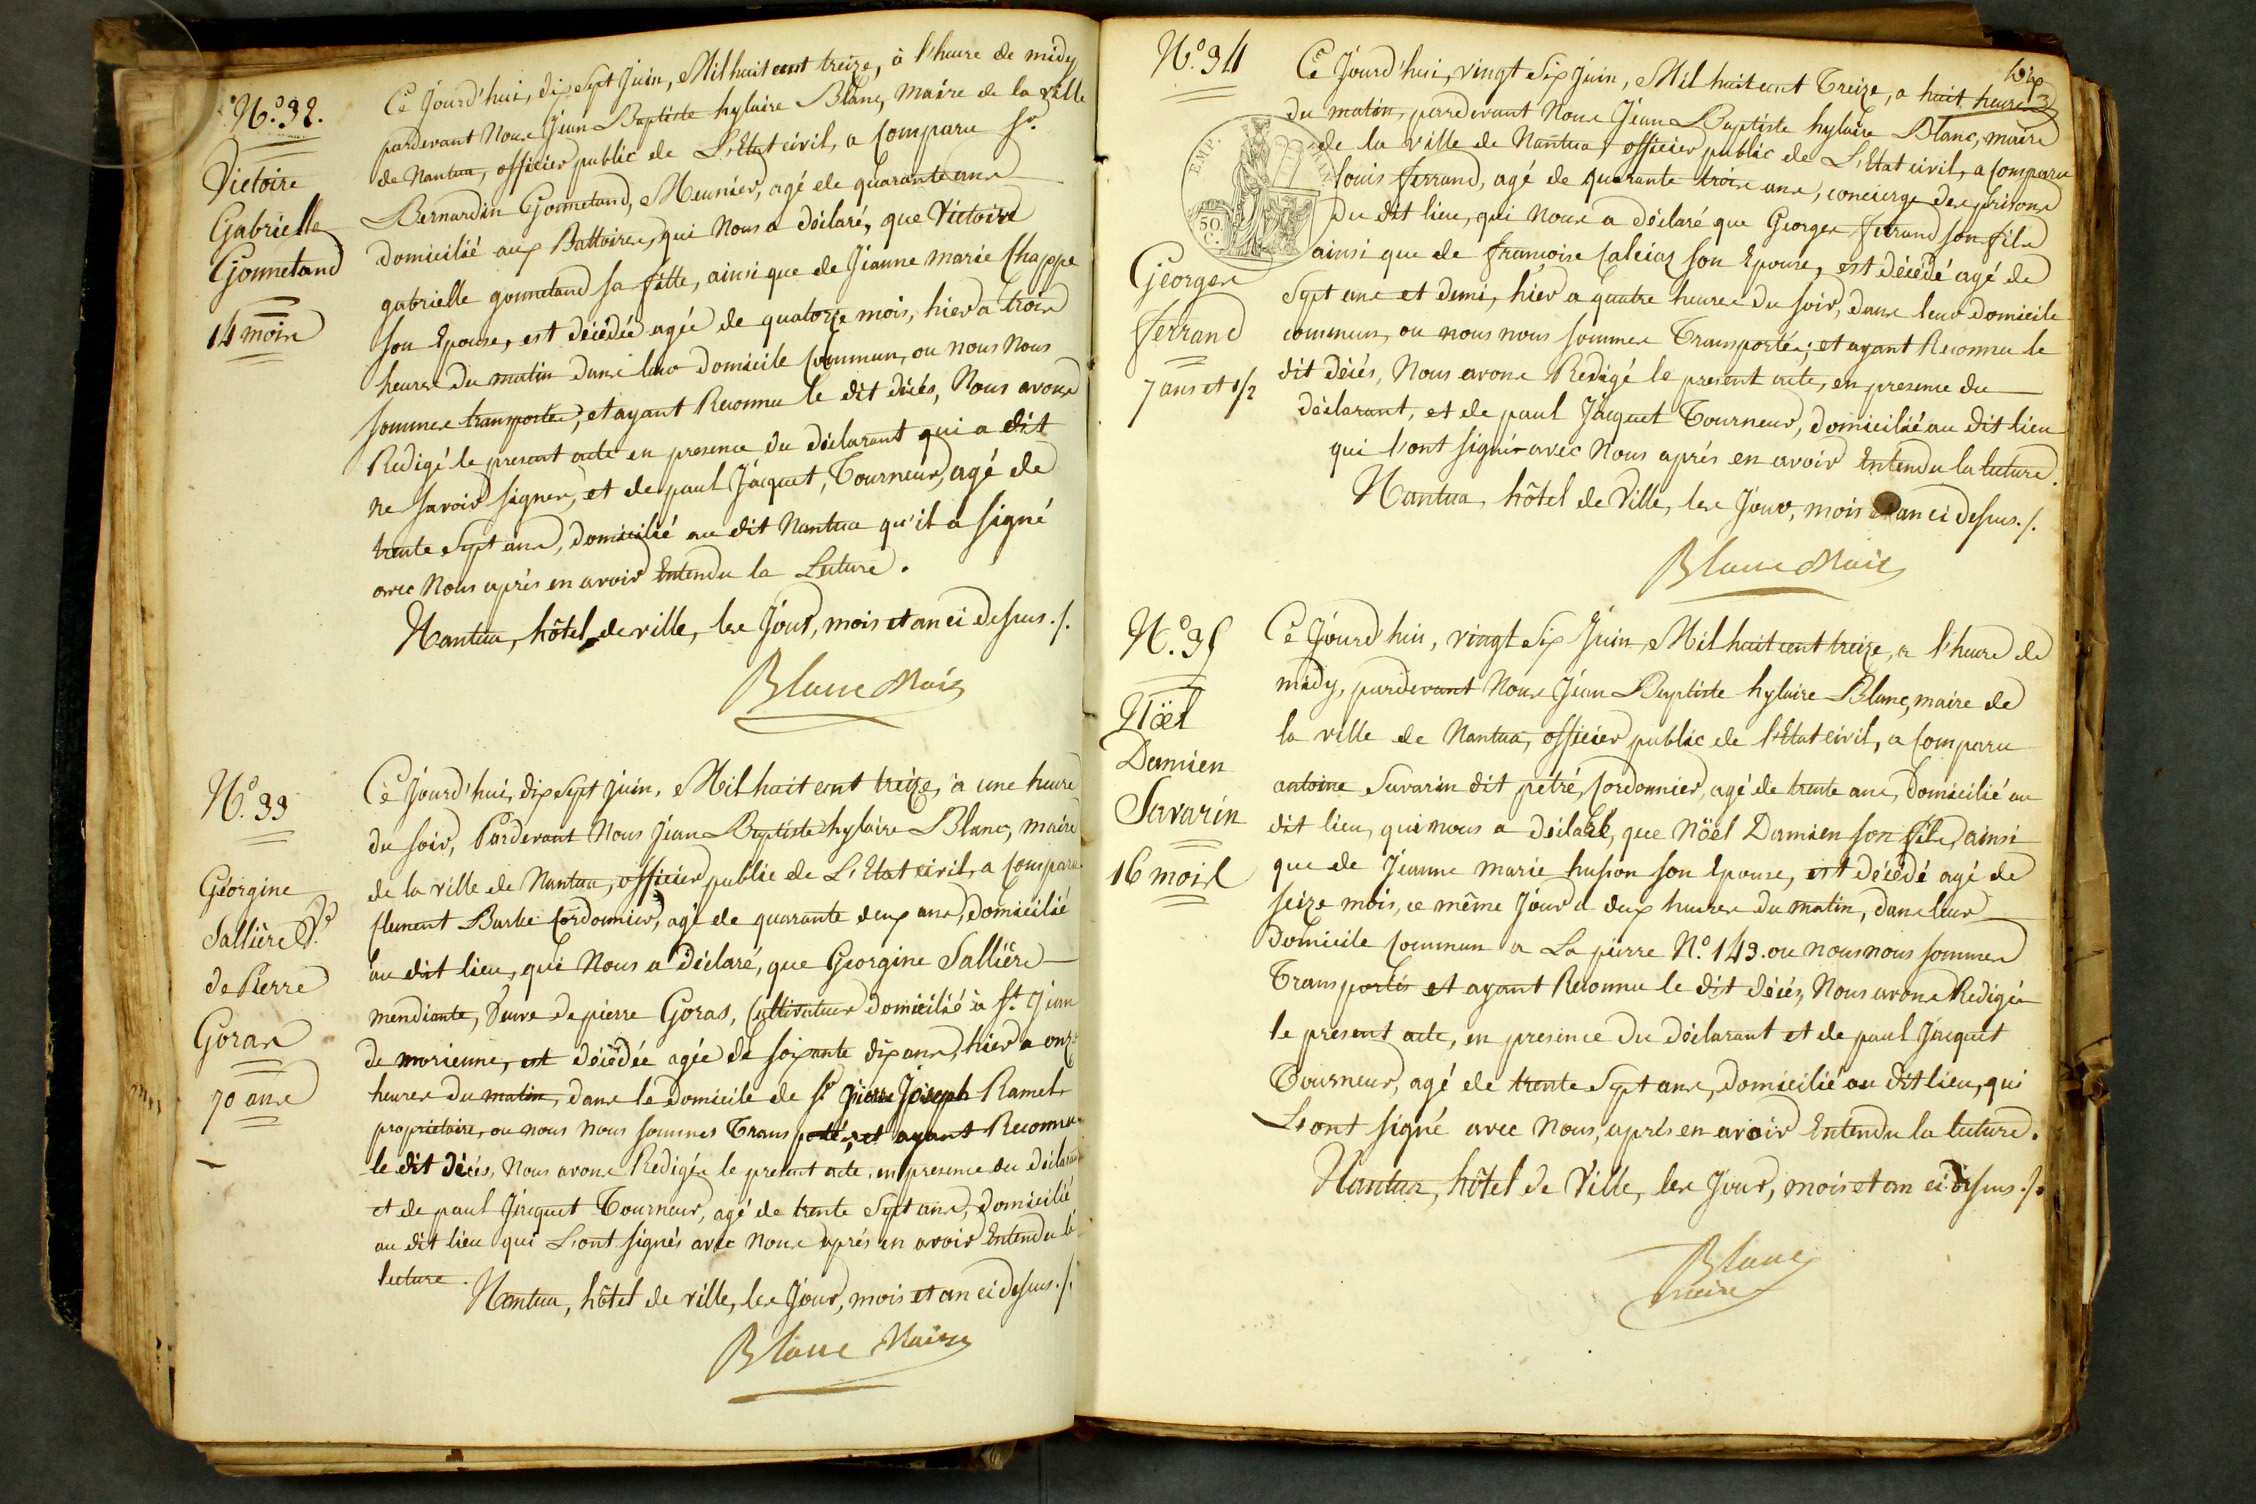 N.° 32.
Victoire
Gabrielle
Gonnetand
14 mois
Ce jourd'hui, dix sept Juin, Mil huit cent treize, à l'heure de midy
pardevant Nous Jean Baptiste hylaire Blanc, maire de la ville
de Nantua, officier public de L'Etat civil, a Comparu Sr.
Bernardin Gonnetand, Meunier, agé de quarante ans
domicilié aux Battoires, qui Nous a déclaré, que Victoire
gabrielle gonnetand sa fille, ainsi que de Jeanne marie Chappe
son Epouse, est décédée agée de quatorze mois, hier a trois
heures du matin dans leur domicile Commun, ou nous Nous
sommes transportés, et ayant Reconnu le dit décés, Nous avons
Redigé le present acte en presence du déclarant qui a dit
ne savoir signer, et de paul Jacquet, Tourneur, agé de
trente Sept ans, domicilié au dit Nantua qu'il a signé
avec Nous aprés en avoir Entendu la Lecture.
Nantua, hôtel de ville, les Jour, mois et an ci dessus ./.
Blanc Maire
N.° 33
Géorgine
Sallière Ve.
de Pierre
Goras
70 ans
Ce jourd'hui, dix Sept Juin, Mil huit cent treize, à une heure
du soir, Pardevant Nous Jean Baptiste hylaire Blanc, maire
de la ville de Nantua, officier public de L'Etat civil, a Comparu
Clement Barbe Cordonnier, agé de quarante deux ans, domicilié
au dit lieu, qui Nous a déclaré, que Georgine Sallière
mendiante, Veuve de pierre Goras, Cultivateur domicilié à St. Jean
de morienne, est décédée agée de soixante dix ans, hier a onze
heures du matin, dans le domicile de Sr. pierre Joseph Ramel
propriétaire, ou nous Nous sommes Transportés, et ayant Reconnu
le dit décés, Nous avons Redigés le present acte, en presence du déclarant
et de paul Jacquet Tourneur, agé de trente Sept ans, domicilié
au dit lieu qui L'ont signés avec Nous aprés en avoir Entendu la
lecture.
Nantua, hôtel de ville, les Jour, mois et an ci dessus ./.
Blanc Maire
dix
N.° 34
EMP.
50
C.
Georges
ferrand
7 ans et 1/2
Ce Jourd'hui, vingt Six Juin, Mil huit cent Treize, a huit heures
du matin, pardevant Nous Jean Baptiste hylaire Blanc, maire
de la ville de Nantua, officier public de L'Etat civil, a Comparu
louis ferrand, agé de quarante trois ans, concierge des prisons
Du dit lieu, qui Nous a déclaré que Georges ferrand son fils
ainsi que de francoise son Epouse, est décédé agé de
Sept ans et demi, hier a quatre heures du soir, dans leur domicile
commun, ou nous nous sommes Transportés; et ayant Reconnu le
dit décés, Nous avons Redigé le present acte, en presence du
déclarant, et de paul Jacquet Tourneur, domicilié au dit lieu
qui l'ont signés avec Nous aprés en avoir Entendu la lecture.
Nantua, hôtel de Ville, les Jour, mois et an ci dessus ./.
Blanc Maire
N.° 35
Nöel
Damien
Savarin
16 mois
Ce Jourd'hui, vingt Six Juin, Mil huit cent treize, a l'heure de
midy, pardevant Nous Jean Baptiste hylaire Blanc, maire de
la ville de Nantua, officier public de l'Etat civil, a Comparu
antoine Savarin dit petré, Cordonnier, agé de trente ans, domicilié au
dit lieu, qui nous a déclaré, que Nöel Damien son fils, ainsi
que de Jeanne marie husson son Epouse, est décédé agé de
seize mois, ce même Jour a deux heures du matin, dans leur
domicile Commun a La pierre N.° 143. ou nous nous sommes
Transportés et ayant Reconnu le dit décés, Nous avons Redigés
le present acte, en presence du déclarant et de paul Jacquet
Tourneur, agé de trente Sept ans, domicilié au dit lieu, qui
L'ont signé avec Nous, aprés en avoir Entendu la lecture.
Nantua, hôtel de Ville, les Jour, mois et an ci dessus ./.
Blanc
maire